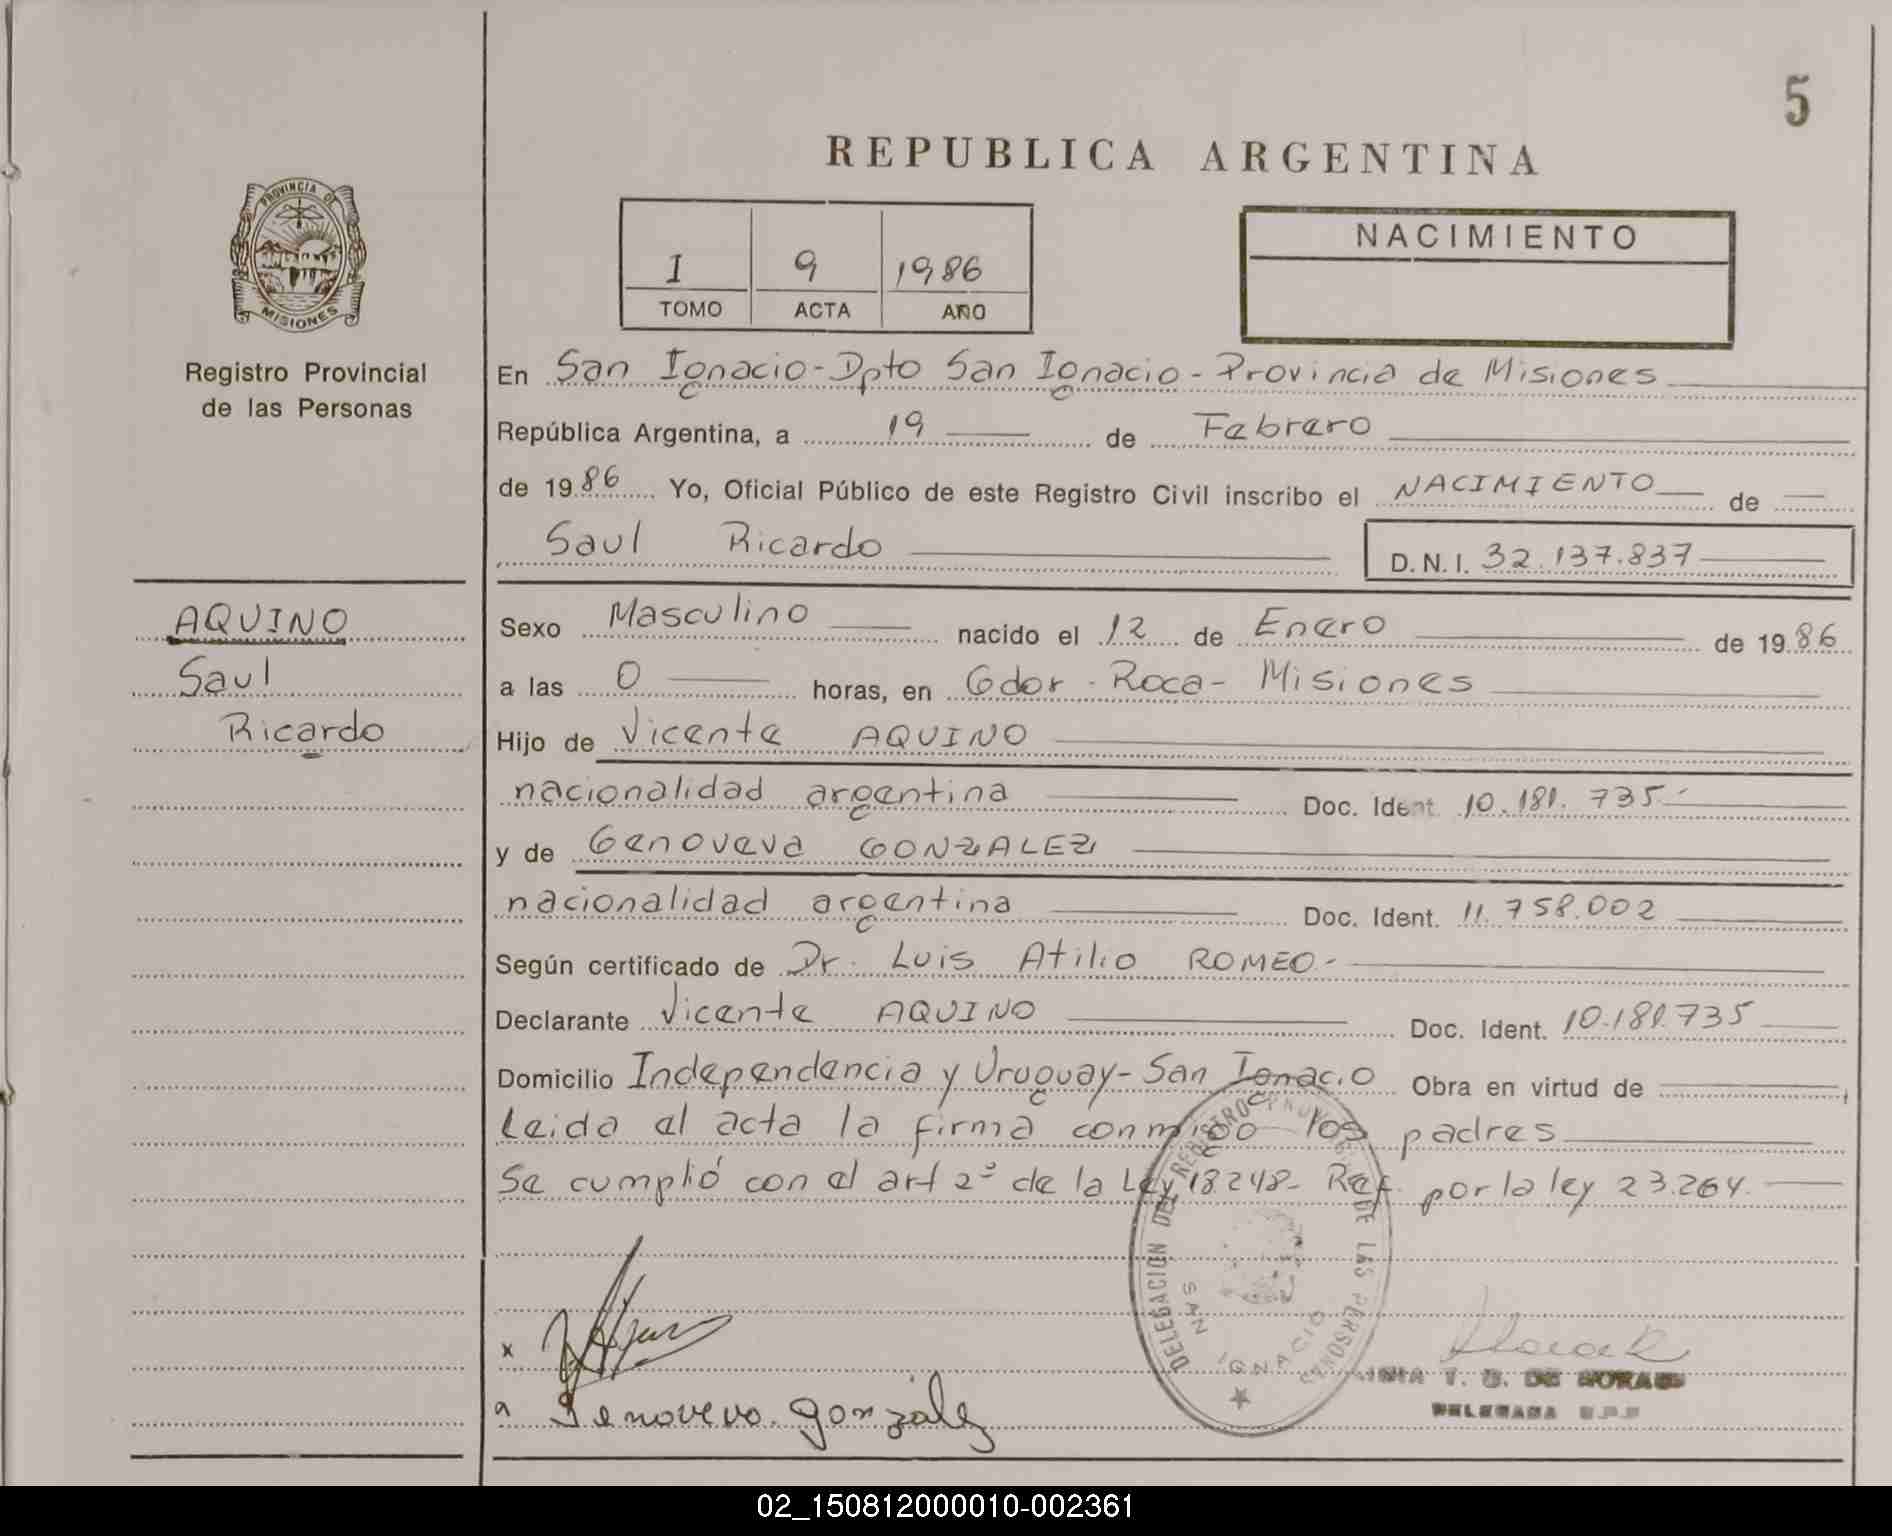 5
REPUBLICA ARGENTINA
PROVINCIA DE
MISIONES
Registro Provincial
de las Personas
I 9 1986
TOMO ACTA AÑO
NACIMIENTO
En San Ignacio - Dpto San Ignacio - Provincia de Misiones
República Argentina, a 19 de Febrero
de 1986 Yo, Oficial Público de este Registro Civil inscribo el NACIMIENTO de
Saul Ricardo D.N.I. 32.137.837
AQUINO
Saul
Ricardo
Sexo Masculino nacido el 12 de Enero de 1986
a las 0 horas, en Gdor - Roca - Misiones
Hijo de Vicente AQUINO
nacionalidad argentina Doc. Ident. 10.181.735
y de Genoveva GONZALEZ
nacionalidad argentina Doc. Ident. 11.758.002
Según certificado de Dr. Luis Atilio ROMEO.-
Declarante Vicente AQUINO Doc. Ident. 10.181.735
Domicilio Independencia y Uruguay - San Ignacio Obra en virtud de
Leida el acta la firma conmigo los padres
Se cumplió con el art 2º de la Ley 18.248- Ref. por la ley 23.264.
DELEGACION DEL REGISTRO PROV. DE LAS PERSONAS
SAN IGNACIO
x
a Genoveva gonzalez
T. G. DE MORAES
DELEGADA R.P.P
02_150812000010-002361